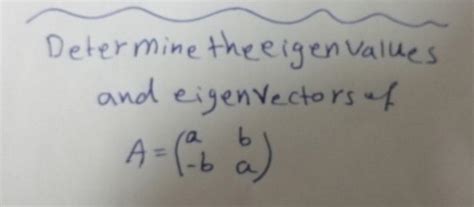 Determine the eigenvalues
and eigenvectors of
A = (a b
-b a)